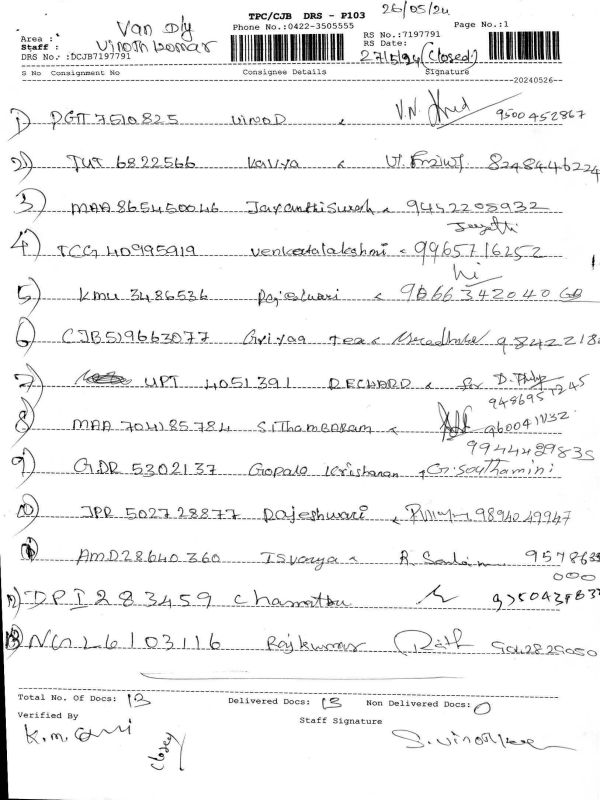 TPC/CJB DRS - P103 26/05/24
Area : Van Dly Phone No.:0422-3505555 Page No.:1
Staff : Vinoth kumar RS No.:7197791
DRS No.:DCJB7197791 RS Date: 27/5/24 (Closed)
S No Consignment No Consignee Details Signature
20240526
1) 7510825 VINOD V.N 9500452867
2) TUT 6822566 Kavya 8248446224
3) MAA 865450046 Jayanthi Suresh 9442205932
4) TCG 40995919 Venkatalakshmi 9965716252
5) KMU 3486536 Rajeshwari 9866342040
6) CJB519663077 Tea 9842218
7) UPT 4051391 RECHARD for D. 9486951245
8) MAA 704185784 SITHAMBARAM 9600411132
9944429835
9) GDR 5302137 Gopala Krishanan G. Sowthamini
10) JPR 502728877 Rajeshwari 9894049947
11) AMD28640360 Isvarya R. 9578635
000
12) DPI283459
13) NGL6103116 Rajkumar 9042829050
Total No. Of Docs: 13 Delivered Docs: 13 Non Delivered Docs: 0
Verified By Staff Signature
K.m. S. Vinoth
Closey